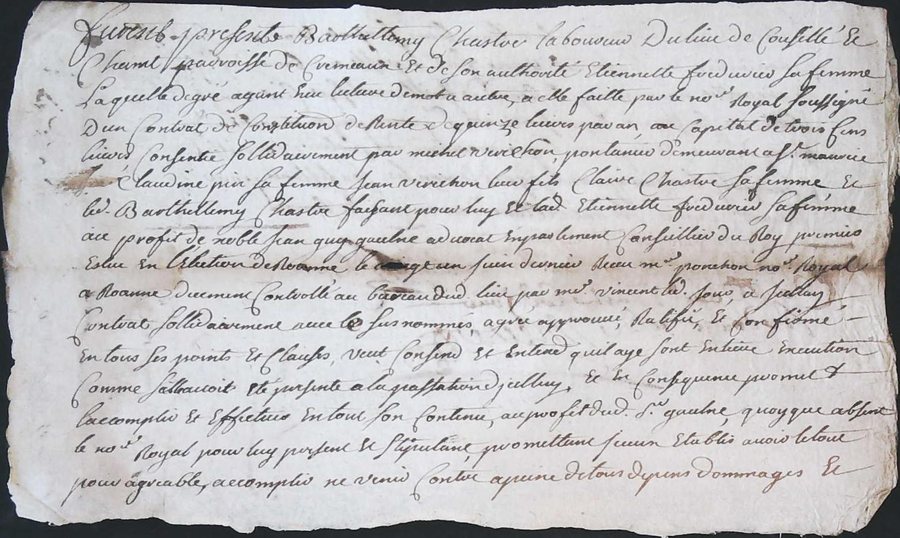 furent presents Barthellemy Chastre laboureur Du lieu de Cousellé Et
Chamt parroisse de Cremeaux Et de son authorité Etiennette fredurier sa femme
Laquelle de gré ayant heu lecture de mot a autre, a elle faitte par le nore Royal soussigné
D'un Contrat de Constitution de Rente de quinze livres par an au Capital de trois Cens
livres Consentie sollidairement par michel verichon, demeurant a St. maurice
Claudine pir sa femme Jean verichon leur fils Claire Chastre sa femme Et
led. Barthellemy Chastre faisant pour luy Et lad. Etiennette fredurier sa femme
au profit de noble Jean guy gaulne advocat En parlement Conseillier du Roy premier
Esleu En l'Election de Roanne le un Juin dernier Receu me. ponchon nore. Royal
a Roanne duement Controllé au bureau dud. lieu par me. vincent led. Jour, a Jcelluy
Contrat sollidairement avec les susnommés, agréé approuvé, Ratifié, Et Confirmé
En tous ses points Et Clauses, veut Consend Et Entend qu'il aye sont Entiere Execution
Comme sa Eté presente a la passation d'jcelluy, Et En Consequence promet
l'accomplir Et Effectuer En tout son Contenu, au profit dud. Sr. gaulne, quoyque absent
le nore. Royal pour luy present Et stipulant, promettant Etablis avoir le tout
pour agreable, accomplir ne venir Contre a peine de tous depens dommages Et